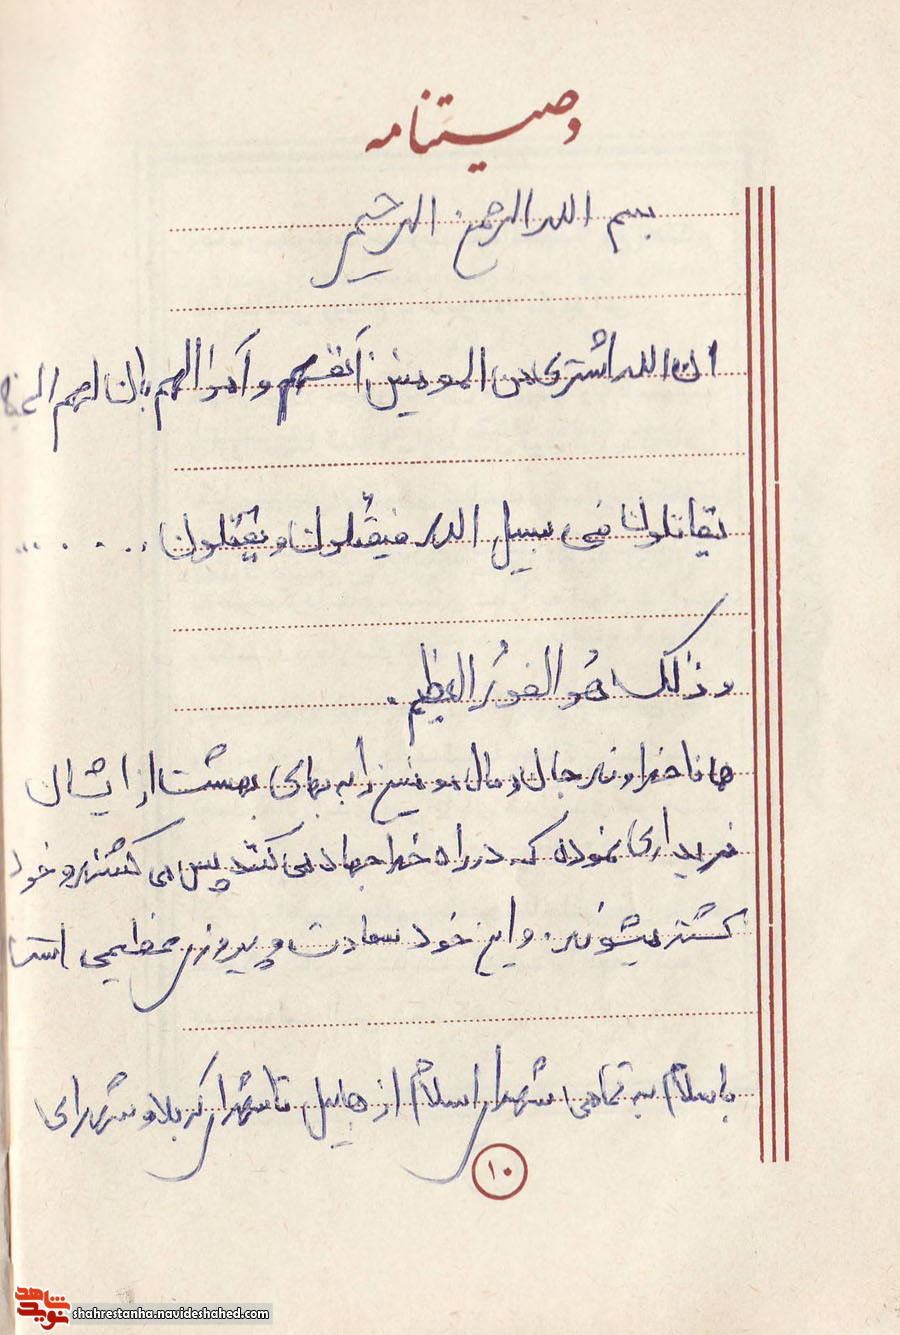 وصیتنامه
بسم الله الرحمن الرحیم
ان الله اشتری من المومنین أنفسهم و أموالهم بان لهم الجنه
یقاتلون فی سبیل الله فیقتلون و یقتلون . . . . ...
و ذلک هُو الفوزُ العظیم.
همانا خداوند جان و مال مومنین را به بهای بهشت از ایشان
خریداری نموده که در راه خدا جهاد می کنند پس می کشند و خود
کشته میشوند. و این خود سعادت و پیروزی عظیمی است
با سلام به تمامی شهدای اسلام از هابیل تا شهدای کربلا و شهدای
۱۰
شاهد
نوید
shahrestanha.navideshahed.com